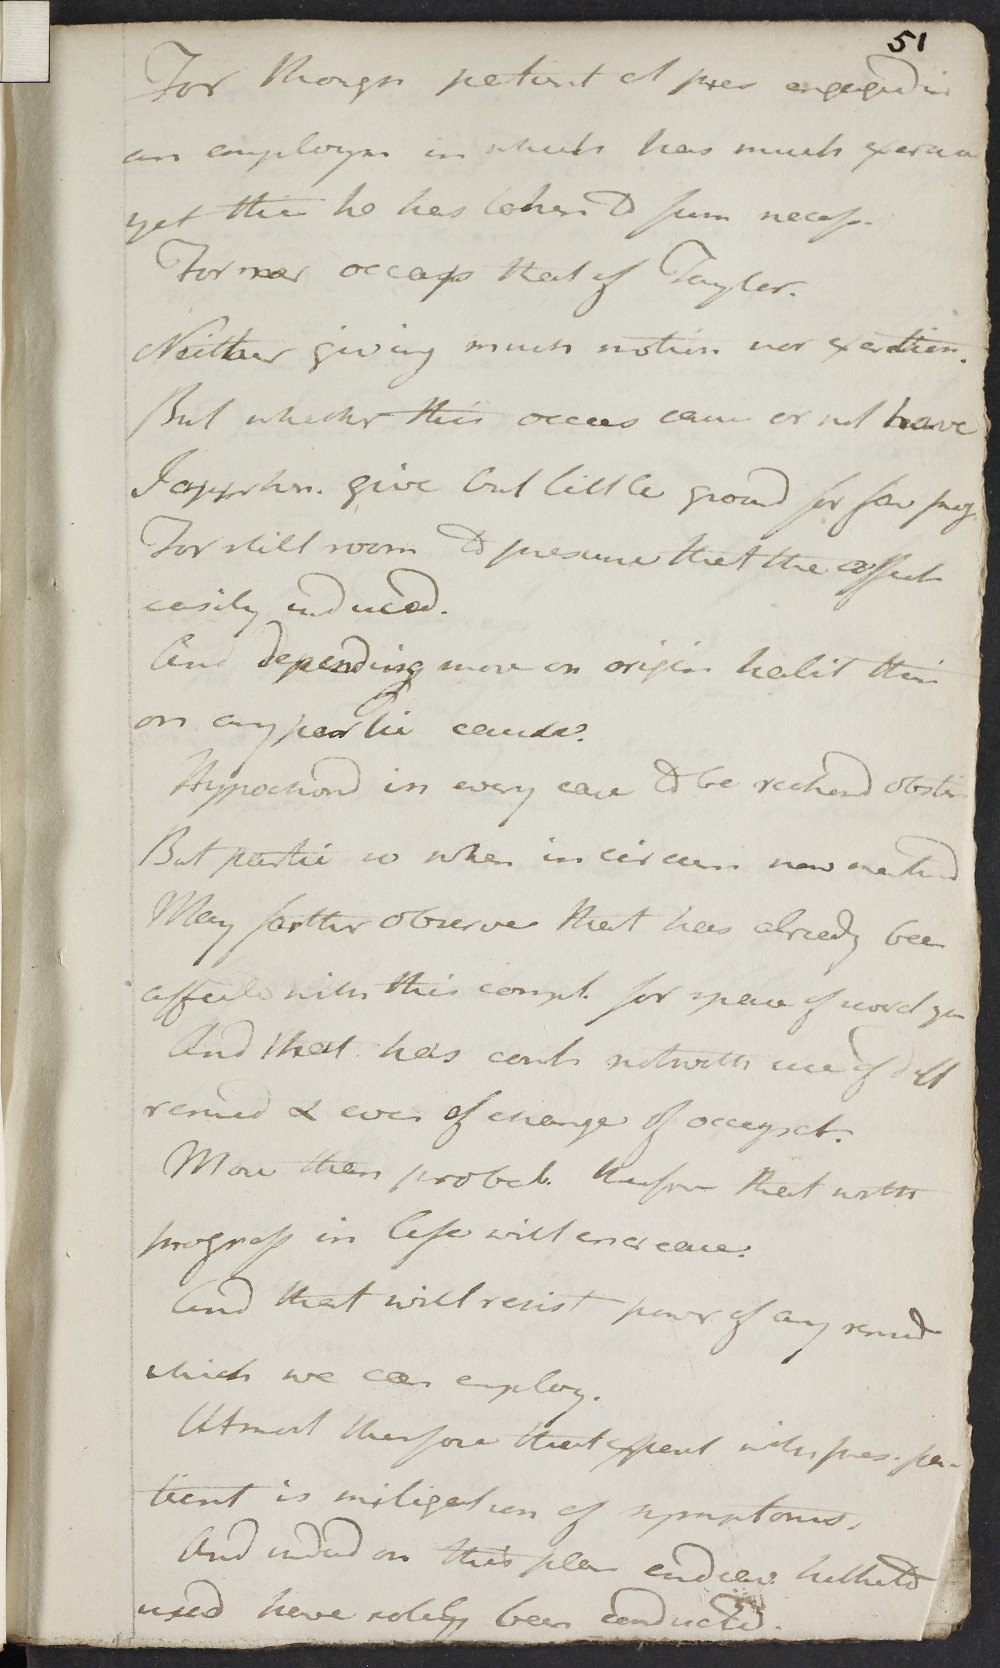 51
For though patient at pres engaged in
an employm in which has much exercise
yet this he has taken to from necess.
Former occup that of Taylor.
Neither giving much motion nor exertion.
But whether this occas cause or not have
I apprehen. give but little ground for fav prog
For still room to presume that the affect
easily induced.
And depending more on origin habit than
on any partic cause.
Hypochond in every case to be reckond obstin
But partic so when in circum now mentiond
May farther observe that has already been
affected with this compl. for space of several yea
And that has cont notwith use of diff
remed & even of change of occupat.
More than probab. therefore that with
progress in life will encrease.
And that will resist power of any remed
which we can employ.
Utmost therefore that expect with pres. pa-
tient is mitigation of symptoms.
And indeed on this plan endeav. hitherto
used have solely been conducted.